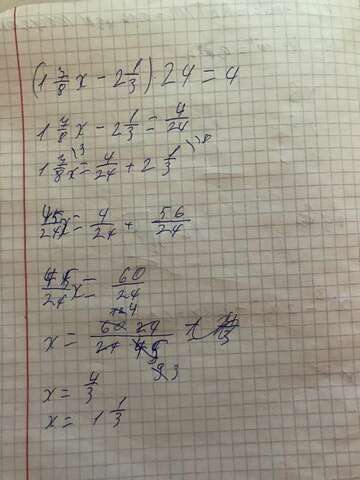 (1 7/8 x - 2 1/3) 24 = 4
1 7/8 x - 2 1/3 = 4/24
1 7/8 x = 4/24 + 2 1/3
45/24 x = 4/24 + 56/24
45/24 x = 60/24
x = 60 24 / 24 45
x = 4/3
x = 1 1/3